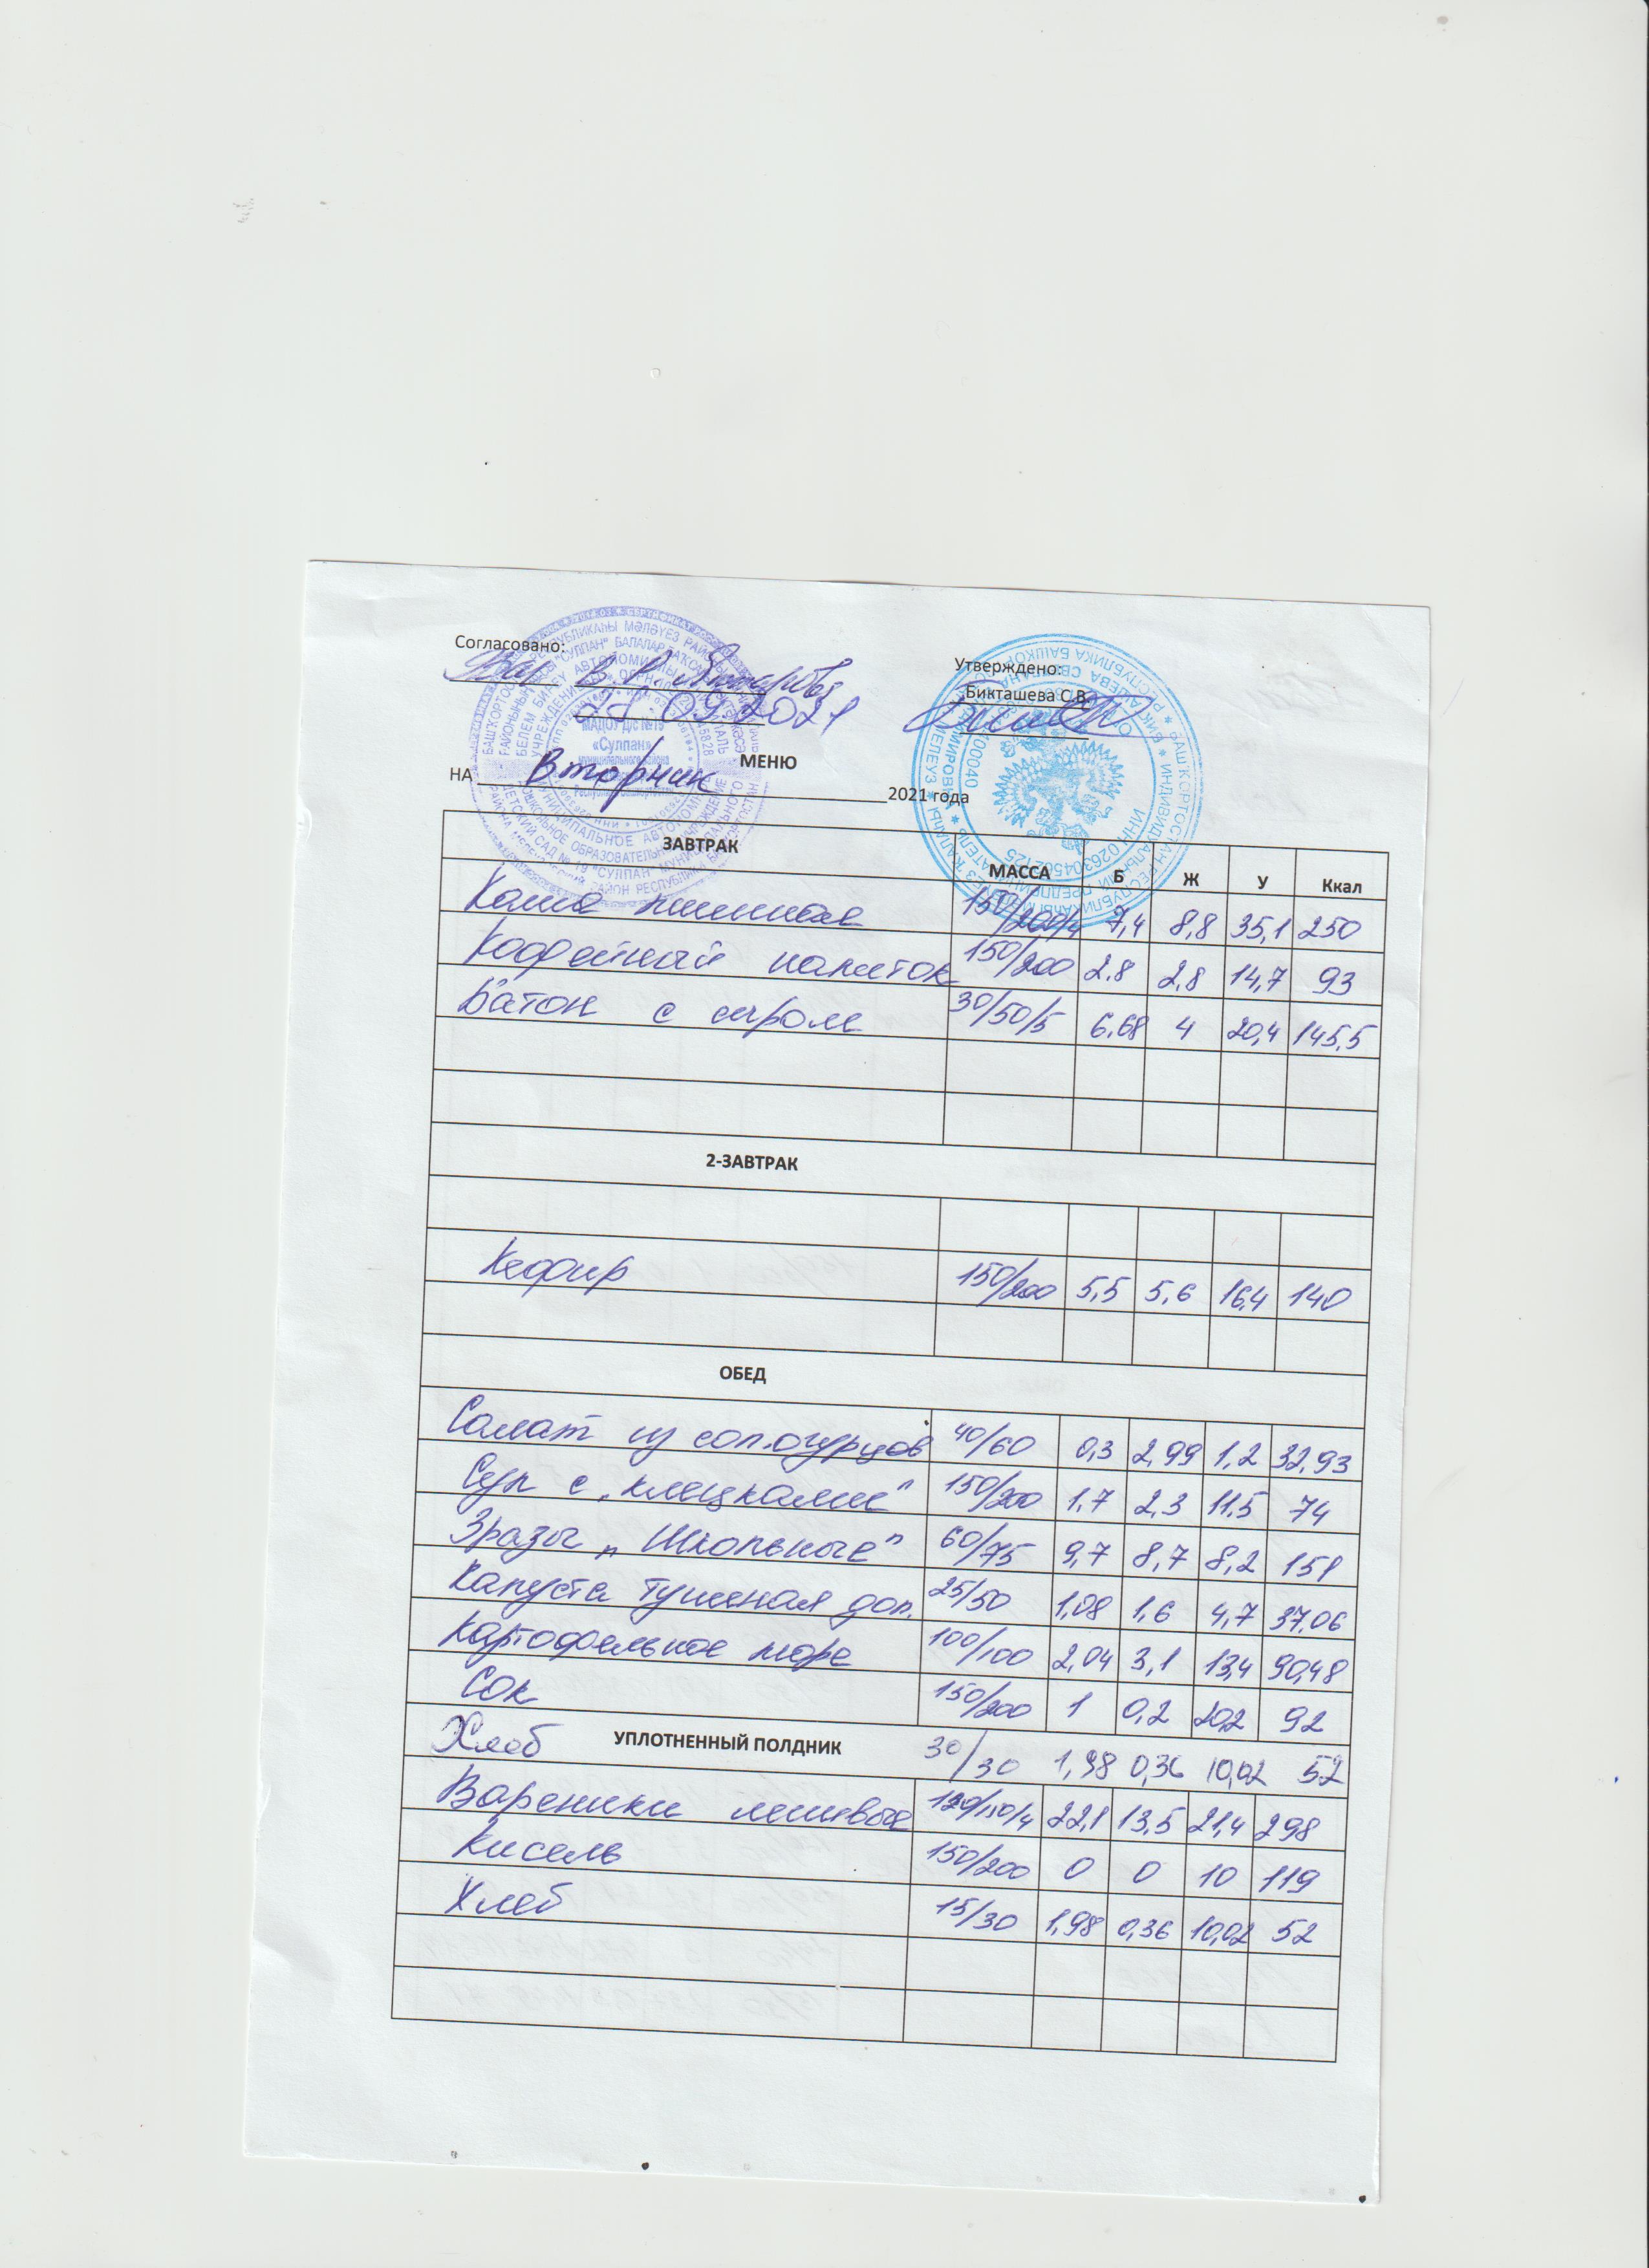 Согласовано:
Утверждено:
Бикташева С.В.
09.2021
МАДОУ д/с №19
«Сулпан»
МЕНЮ
НА Вторник 2021 года
ЗАВТРАК МАССА Б Ж У Ккал
Каша пшенная 150/200/4 7,4 8,8 35,1 250
Кофейный напиток 150/200 2.8 2,8 14,7 93
Батон с сыром 30/50/5 6,68 4 20,4 145,5
2-ЗАВТРАК
Кефир 150/200 5,5 5,6 16,4 140
ОБЕД
Салат из сол.огурцов 40/60 0,3 2,99 1,2 32,93
Суп с „клецками" 150/200 1,7 2,3 11,5 74
Зразы „Школьные" 60/75 9,7 8,7 8,2 151
Капуста тушеная доп. 25/50 1,08 1,6 4,7 37,06
Картофельное пюре 100/100 2,04 3,1 13,4 90,48
Сок 150/200 1 0,2 20,2 92
Хлеб УПЛОТНЕННЫЙ ПОЛДНИК 30/30 1,98 0,36 10,02 52
Вареники ленивые 22,1 13,5 21,4 298
Кисель 150/200 0 0 10 119
Хлеб 15/30 1,98 0,36 10,02 52